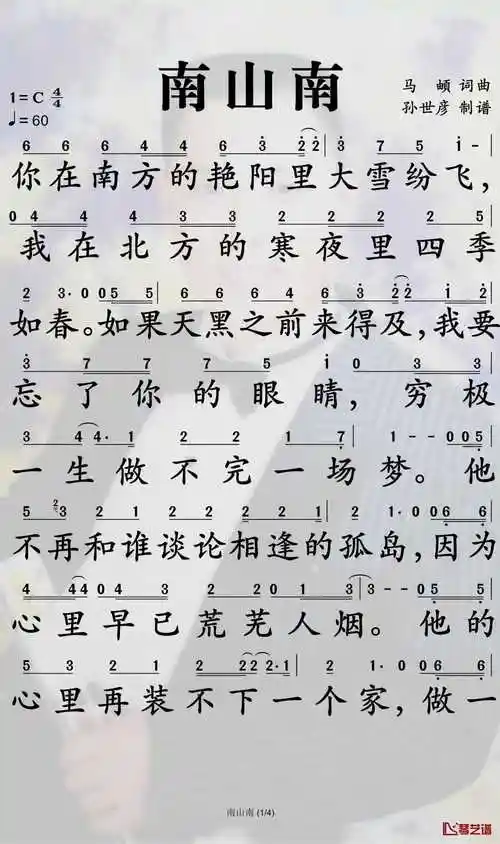 南山南
1=C 4/4
♩=60
马頔 词曲
孙世彦 制谱
6 6 6 4 4 6 3 2 2 3 7 5 i -
你在南方的艳阳里大雪纷飞,
0 4 4 4 3 3 2 2 2 2 5
我在北方的寒夜里四季
2 3· 0 0 5 5 6 6 6 4 6 3 2 2 i 2
如春。如果天黑之前来得及,我要
3 7 7 7 5 i 0 3 3
忘了你的眼睛,穷极
3 4 4· 1 2 2 1 1 7 1 - 0 0 5
一生做不完一场梦。他
5 2 3 2 2 2 2 2 2 2 1 2 0 0 6 6
不再和谁谈论相逢的孤岛,因为
4 4 4 0 4 3 2 2 0 1 3 3 - - 0 5 5
心里早已荒芜人烟。他的
5 3 2 1 2 1 2 2 2 2· 1 2 1· 0 0 6 6
心里再装不下一个家,做一
南山南 (1/4)
琴艺谱